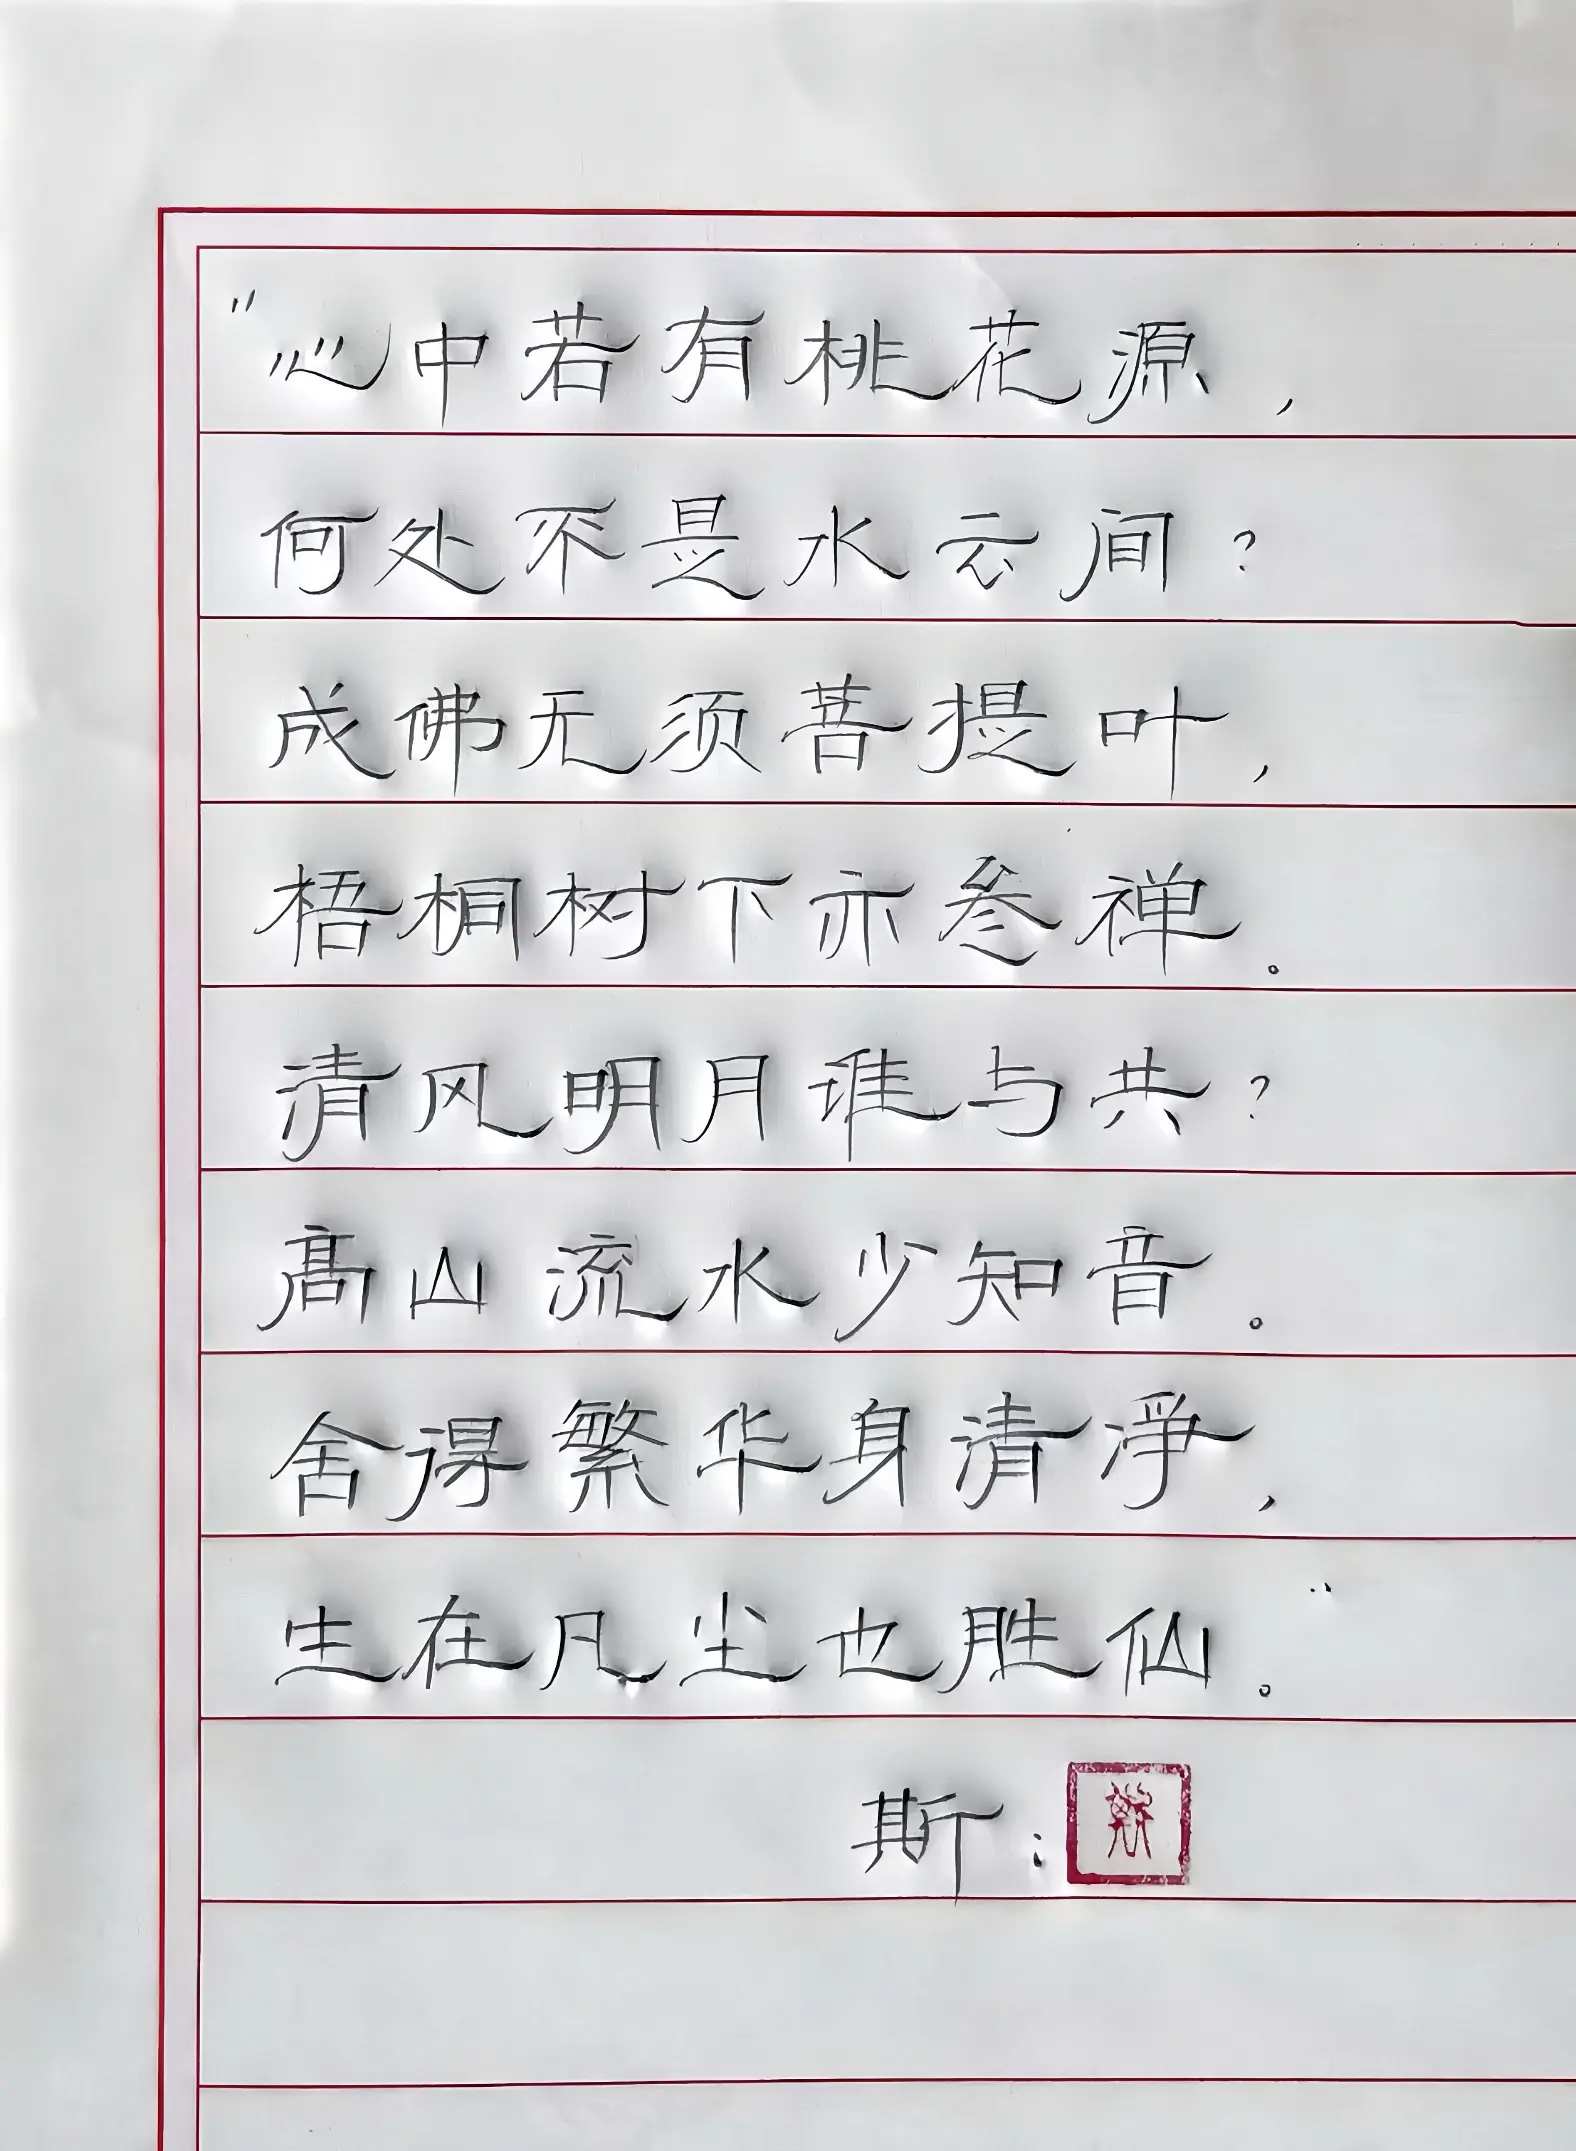 “心中若有桃花源，
何处不是水云间？
成佛无须菩提叶，
梧桐树下亦叁禅。
清风明月谁与共？
髙山流水少知音。
舍得繁华身清净，
生在凡尘也胜仙。”
斯：